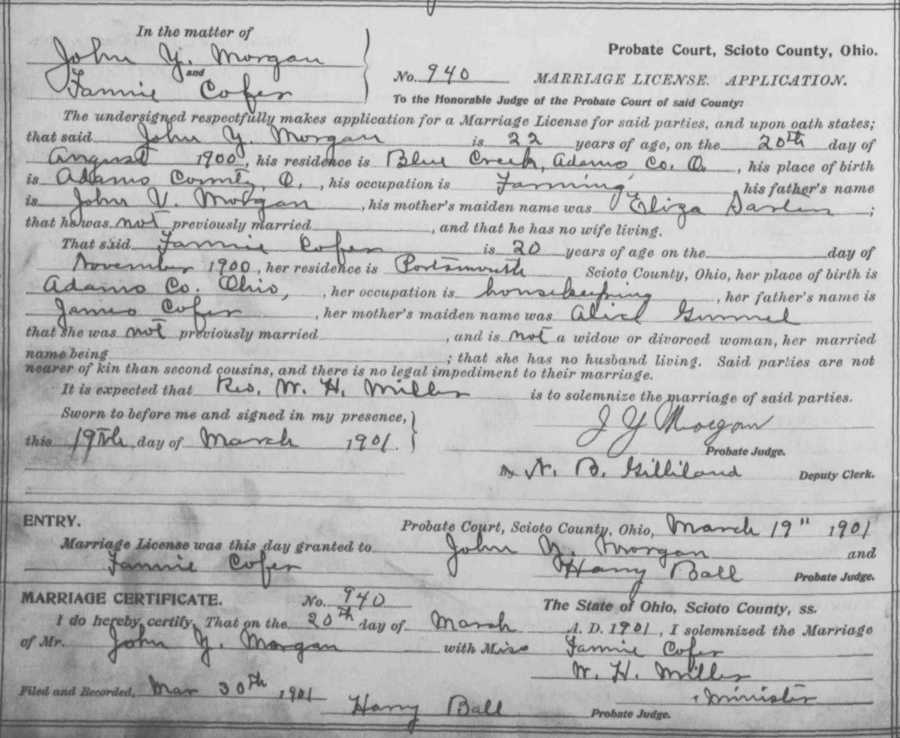 In the matter of
John Y. Morgan
and
Fannie Cofer
Probate Court, Scioto County, Ohio.
No. 940 MARRIAGE LICENSE. APPLICATION.
To the Honorable Judge of the Probate Court of said County:
The undersigned respectfully makes application for a Marriage License for said parties, and upon oath states;
that said John Y. Morgan is 22 years of age, on the 20th day of
August 1900, his residence is Blue Creek, Adams Co. O., his place of birth
is Adams County, O., his occupation is Farming, his father's name
is John V. Morgan, his mother's maiden name was Eliza;
that he was not previously married, and that he has no wife living.
That said Fannie Cofer is 20 years of age on the day of
November 1900, her residence is Portsmouth Scioto County, Ohio, her place of birth is
Adams Co. Ohio, her occupation is housekeeping, her father's name is
James Cofer, her mother's maiden name was
that she was not previously married, and is not a widow or divorced woman, her married
name being; that she has no husband living. Said parties are not
nearer of kin than second cousins, and there is no legal impediment to their marriage.
It is expected that Rev. W. H. Miller is to solemnize the marriage of said parties.
Sworn to before me and signed in my presence,
this 19th day of March 1901.
J Y Morgan
Probate Judge.
By N. B. Gilliland Deputy Clerk.
ENTRY.
Probate Court, Scioto County, Ohio, March 19" 1901
Marriage License was this day granted to John Y. Morgan and
Fannie Cofer
Harry Ball Probate Judge.
MARRIAGE CERTIFICATE. No. 940 The State of Ohio, Scioto County, ss.
I do hereby certify, That on the 20th day of March A. D. 1901, I solemnized the Marriage
of Mr. John Y. Morgan with Miss Fannie Cofer
W. H. Miller
Minister
Filed and Recorded, Mar 30th 1901
Harry Ball Probate Judge.